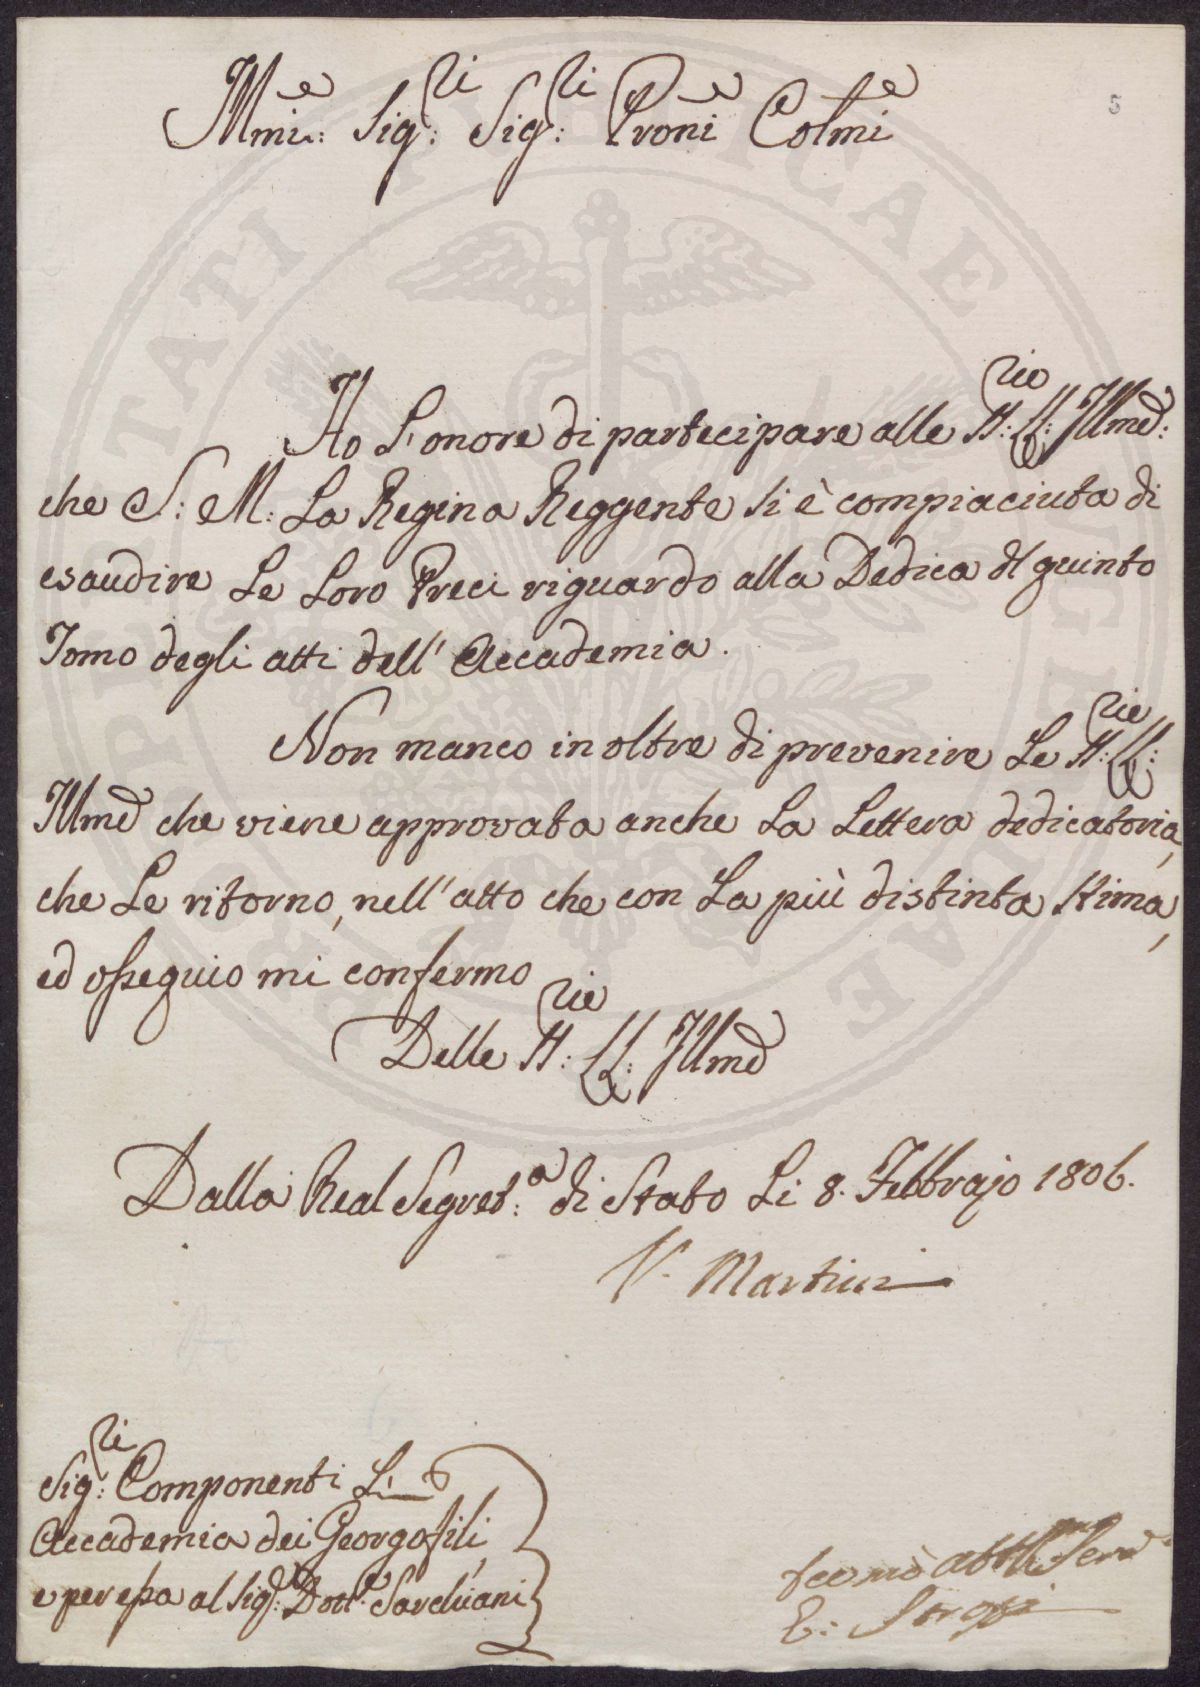 Illmi: Sig:ri Sig:ri Proni Colmi
5
Ho L'onore di partecipare alle VV:rie LL: Illme:
che S: M: La Regina Reggente si è compiaciuta di
esaudire Le Loro Preci riguardo alla Dedica del quinto
Tomo degli atti dell' Accademia.
Non manco inoltre di prevenire Le VV:rie LL:
Illme che viene approvata anche La Lettera dedicatoria,
che Le ritorno, nell' atto che con La più distinta stima,
ed ossequio mi confermo
Delle VV:rie LL: Illme
Dalla Real Segret:a di Stato Li 8. Febbrajo 1806.
V. Martini
Sig:ri Componenti L'
Accademia dei Georgofili,
e per essa al Sig:e Dott:e Sarchiani
E:
PROSPERITATI PUBLICAE AUGENDAE